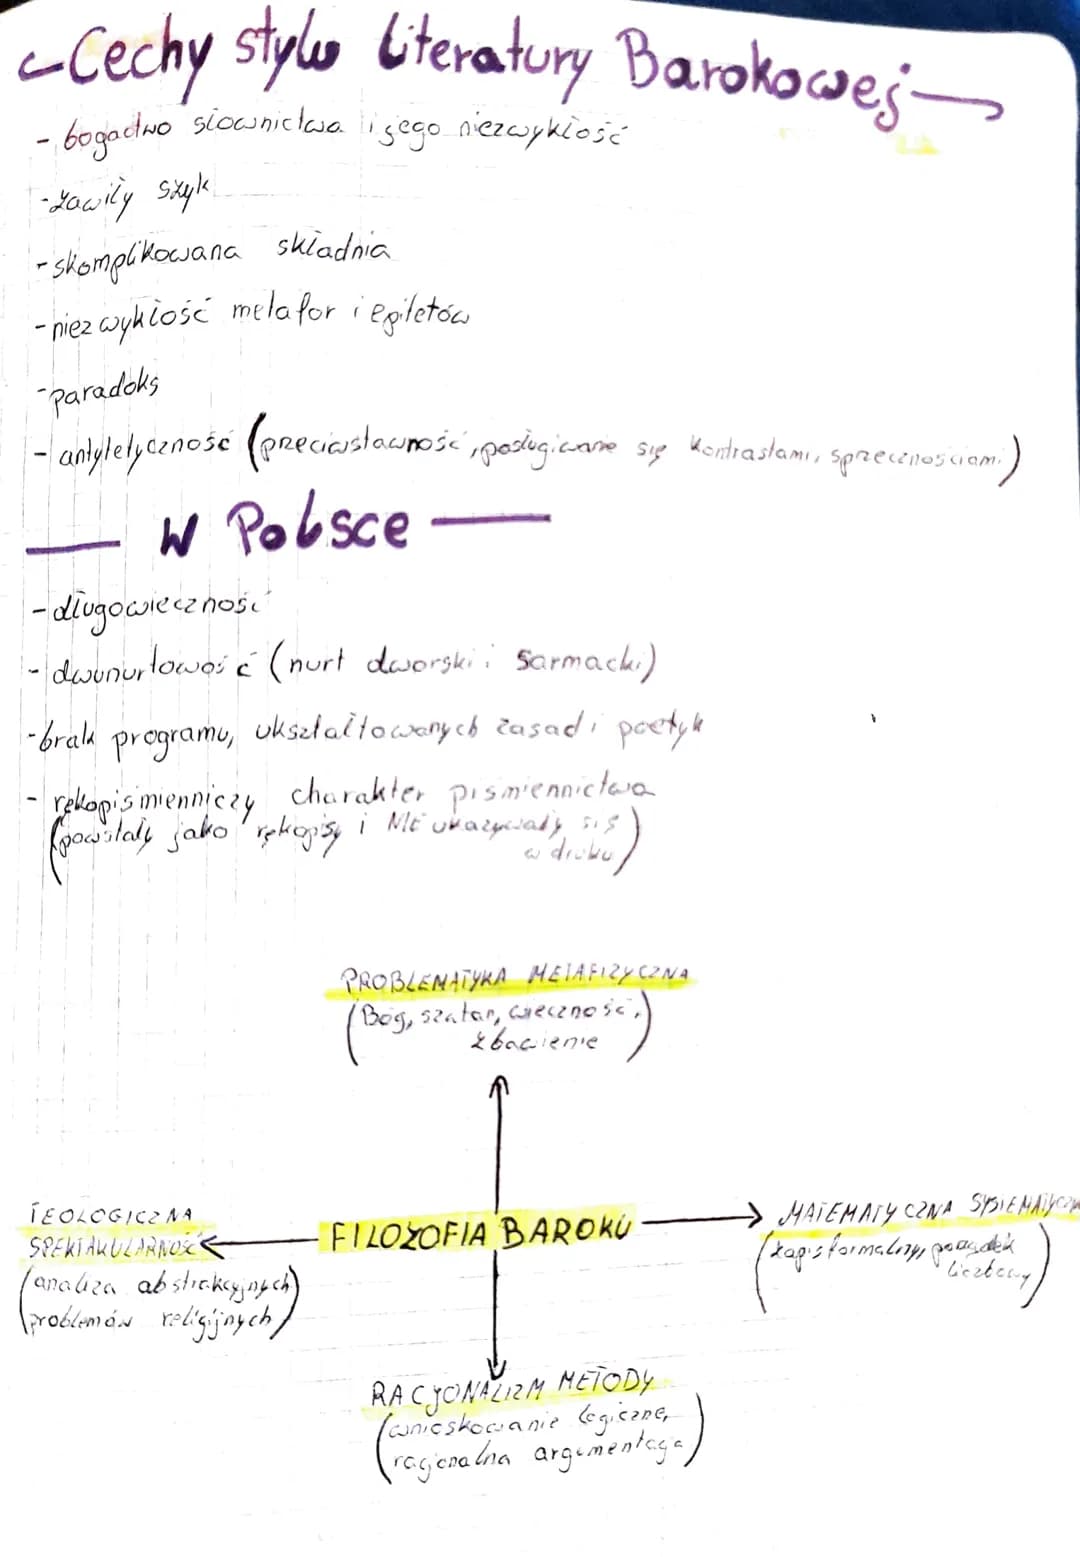 Cechy stylu literatury Barokowej
- bogactwo słownictwa i jego niezwykłość
- zawiły szyk
- skomplikowana składnia
- niezwykłość metafor i epitetów
- paradoks
- antytetyczność (przeciwstawność, posługiwanie się kontrastami, sprzecznościami)
W Polsce
- długowieczność
- dwunurtowość (nurt dworski i sarmacki)
- brak programu, ukształtowanych zasad i poetyk
- rękopiśmienniczy charakter piśmiennictwa
(powstały jako rękopisy i NIE ukazywały się
w druku)
PROBLEMATYKA METAFIZYCZNA
(Bóg, szatan, wieczność,
zbawienie)
TEOLOGICZNA
SPEKTAKULARNOŚĆ
(analiza abstrakcyjnych
problemów religijnych)
FILOZOFIA BAROKU
MATEMATYCZNA SYSTEMATYCZN
(zapis formalny, porządek
liczbowy)
RACJONALIZM METODY
(wnioskowanie logiczne,
racjonalna argumentacja)